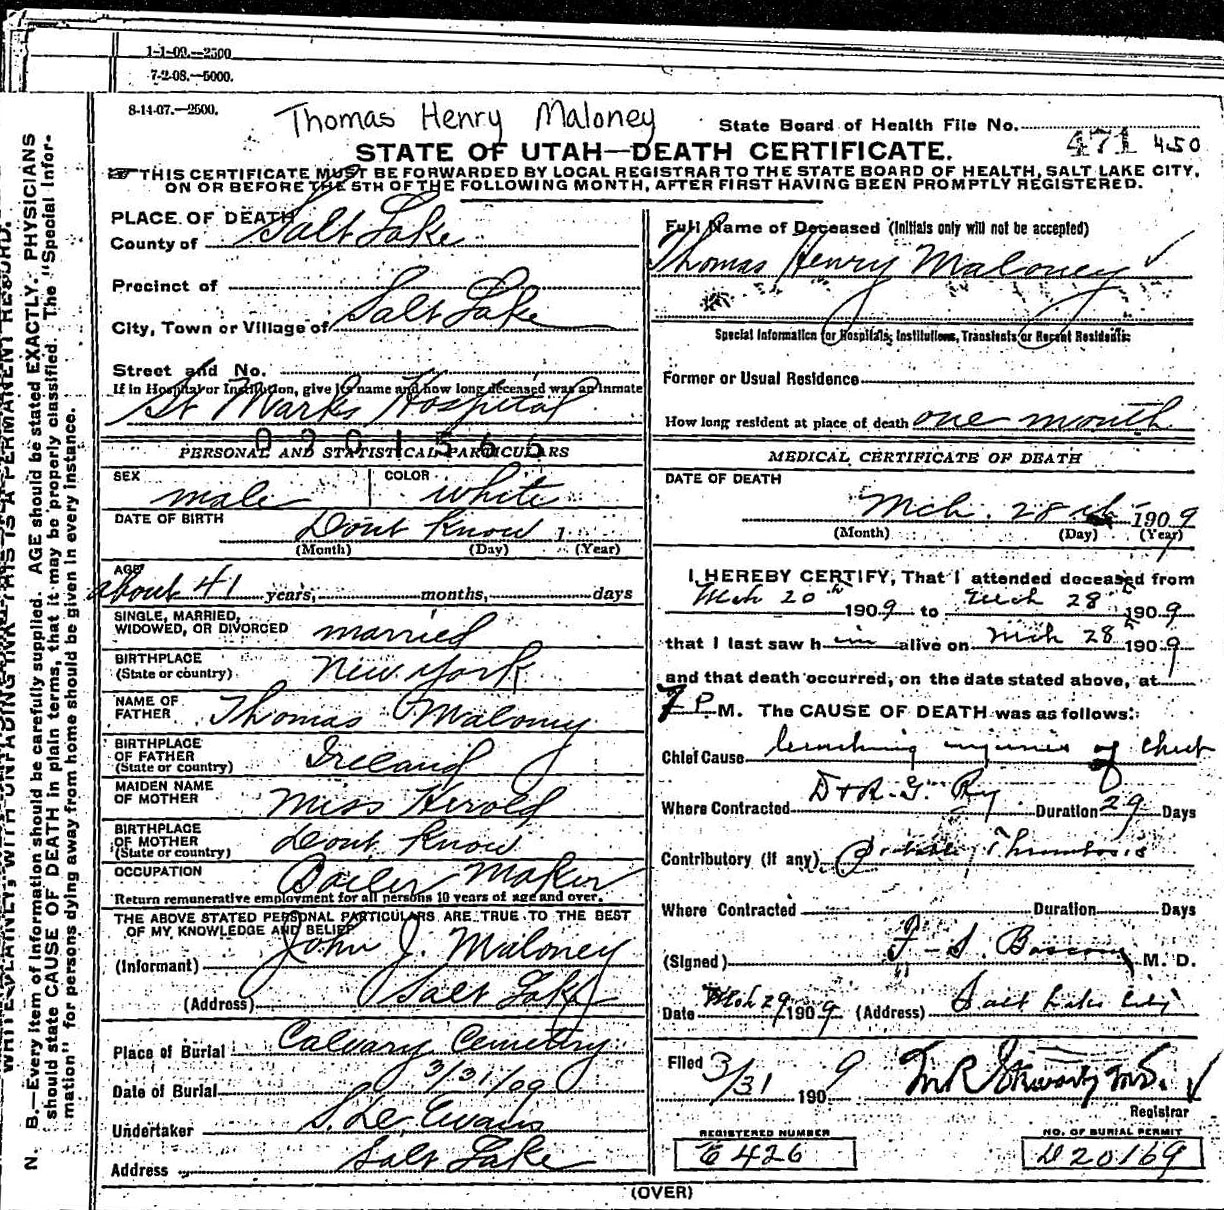 1-1-09.—2500
7-2-08.—5000.
8-14-07.—2500.
Thomas Henry Maloney
State Board of Health File No.
471 450
STATE OF UTAH—DEATH CERTIFICATE.
THIS CERTIFICATE MUST BE FORWARDED BY LOCAL REGISTRAR TO THE STATE BOARD OF HEALTH, SALT LAKE CITY,
ON OR BEFORE THE 5TH OF THE FOLLOWING MONTH, AFTER FIRST HAVING BEEN PROMPTLY REGISTERED.
WRITE PLAINLY, WITH UNFADING INK—THIS IS A PERMANENT RECORD.
N. B.—Every item of information should be carefully supplied. AGE should be stated EXACTLY. PHYSICIANS
should state CAUSE OF DEATH in plain terms, that it may be properly classified. The "Special Infor-
mation" for persons dying away from home should be given in every instance.
PLACE OF DEATH
County of Salt Lake
Precinct of
City, Town or Village of Salt Lake
Street and No.
If in Hospital or Institution, give its name and how long deceased was an inmate
St Marks Hospital
0201566
PERSONAL AND STATISTICAL PARTICULARS
SEX male COLOR white
DATE OF BIRTH Dont Know 1
(Month) (Day) (Year)
AGE about 41 years, months, days
SINGLE, MARRIED,
WIDOWED, OR DIVORCED married
BIRTHPLACE
(State or country) New York
NAME OF
FATHER Thomas Maloney
BIRTHPLACE
OF FATHER
(State or country) Ireland
MAIDEN NAME
OF MOTHER Miss Herold
BIRTHPLACE
OF MOTHER
(State or country) Dont Know
OCCUPATION Boiler Maker
Return remunerative employment for all persons 10 years of age and over.
THE ABOVE STATED PERSONAL PARTICULARS ARE TRUE TO THE BEST
OF MY KNOWLEDGE AND BELIEF
(Informant) John J. Maloney
(Address) Salt Lake
Place of Burial Calvary Cemetry
Date of Burial 3/31/09
Undertaker S. De Evans
Address Salt Lake
Full Name of Deceased (Initials only will not be accepted)
Thomas Henry Maloney
Special Information for Hospitals, Institutions, Transients or Recent Residents:
Former or Usual Residence
How long resident at place of death one month
MEDICAL CERTIFICATE OF DEATH
DATE OF DEATH
Mch. 28th 1909
(Month) (Day) (Year)
I HEREBY CERTIFY, That I attended deceased from
Mch 20th 1909 to Mch 28 1909
that I last saw him alive on Mch 28 1909
and that death occurred, on the date stated above, at
7 P M. The CAUSE OF DEATH was as follows:
Chief Cause crushing injuries of chest
Where Contracted D & R. G. Ry Duration 29 Days
Contributory (if any) Thrombosis
Where Contracted Duration Days
(Signed) F. S. Bascom M. D.
Date Mch 29 1909 (Address) Salt Lake City
Filed 3/31 1909
Registrar
REGISTERED NUMBER
E 426
NO. OF BURIAL PERMIT
D20169
(OVER)